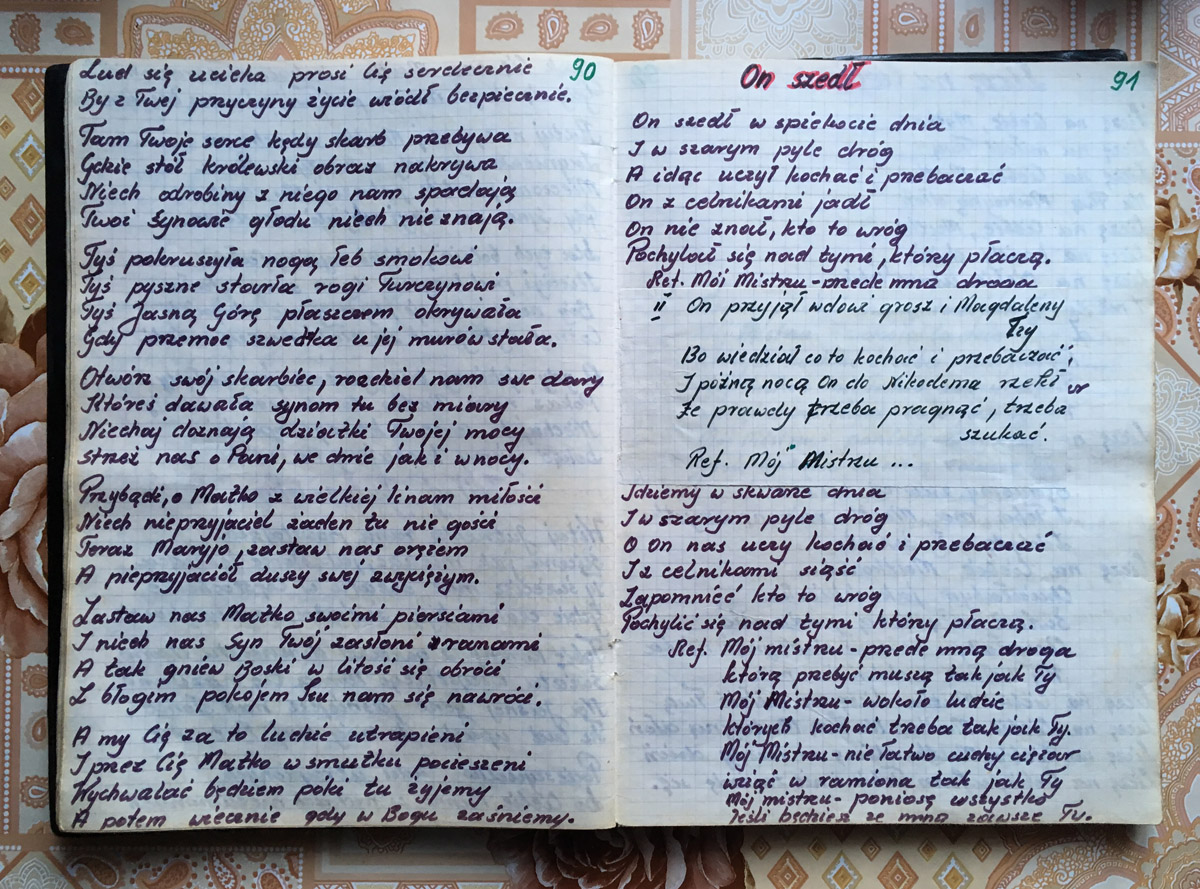 90
Lud się ucieka prosi Cię serdecznie
By z Twej przyczyny życie wiódł bezpiecznie.
Tam Twoje serce kędy skarb przebywa
Gdzie stół królewski obraz nakrywa
Niech odrobiny z niego nam spadają
Twoi Synowie głodu niech nie znają.
Tyś pokruszyła nogą łeb smokowi
Tyś pyszne starła rogi Turczynowi
Tyś Jasną Górę płaszczem okrywała
Gdy przemoc szwedzka u jej murów stała.
Otwórz swój skarbiec, rozdziel nam swe dary
Któreś dawała synom tu bez miary
Niechaj doznają dziatki Twojej mocy
strzeż nas o Pani, we dnie jak i w nocy.
Przybądź, o Matko z wielkiej k'nam miłości
Niech nieprzyjaciel żaden tu nie gości
Teraz Maryjo, zastaw nas orężem
A nieprzyjaciół duszy swej zwyciężym.
Zastaw nas Matko swoimi piersiami
I niech nas Syn Twój zasłoni ranami
A tak gniew Boski w litość się obróci
Z błogim pokojem ku nam się nawróci.
A my Cię za to ludzie utrapieni
I przez Cię Matko w smutku pocieszeni
Wychwalać będziem póki tu żyjemy
A potem wiecznie gdy w Bogu zaśniemy.
On szedł
91
On szedł w spiekocie dnia
I w szarym pyle dróg
A idąc uczył kochać i przebaczać
On z celnikami jadł
On nie znał, kto to wróg
Pochylał się nad tymi, który płaczą.
Ref. Mój Mistrzu - przede mną droga
II On przyjął wdowi grosz i Magdaleny
łzy
Bo wiedział co to kochać i przebaczać,
I późną nocą On do Nikodema rzekł
Że prawdy trzeba pragnąć, trzeba
szukać.
Ref. Mój Mistrzu ...
Idziemy w skwarze dnia
I w szarym pyle dróg
O On nas uczy kochać i przebaczać
I z celnikami siąść
Zapomnieć kto to wróg
Pochylić się nad tymi który płaczą.
Ref. Mój mistrzu - przede mną droga
którą przebyć muszę tak jak Ty
Mój Mistrzu - wokoło ludzie
których kochać trzeba tak jak Ty.
Mój Mistrzu - nie łatwo cudzy ciężar
wziąć w ramiona tak jak Ty
Mój mistrzu - poniosę wszystko
Jeśli będziesz ze mną zawsze Ty.